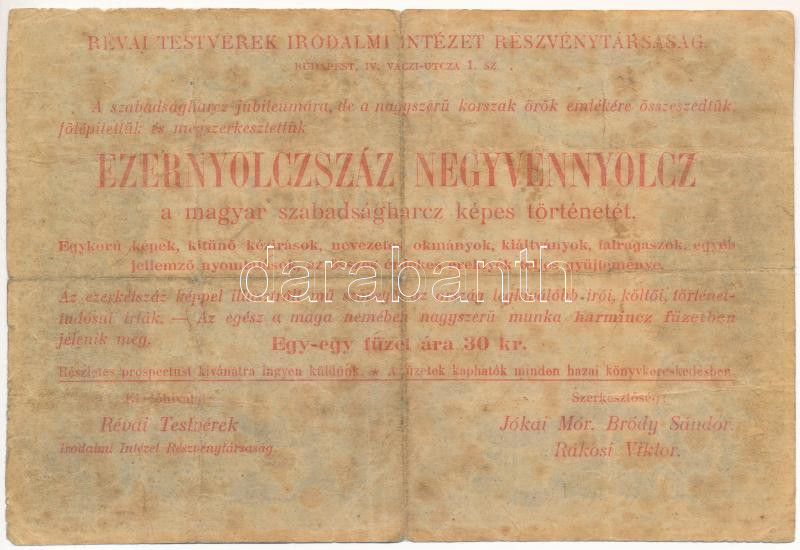 RÉVAI TESTVÉREK IRODALMI INTÉZET RÉSZVÉNYTÁRSASÁG.
BUDAPEST, IV. VÁCZI-UTCZA 1. SZ.
A szabadságharcz jubileumára, de a nagyszerű korszak örök emlékére összeszedtük,
fölépítettük és megszerkesztettük
EZERNYOLCZSZÁZ NEGYVENNYOLCZ
a magyar szabadságharcz képes történetét.
Egykorú képek, kitünő kézirások, nevezetes okmányok, kiáltványok, falragaszok, egyéb
jellemző nyomtatások, az összes érdekes ereklyék teljes gyüjteménye.
darabanth
Az ezerkétszáz képpel illusztrált mű szövegét az ország legkitűnőbb irói, költői, történet-
tudósai irták. — Az egész a maga nemében nagyszerű munka harmincz füzetben
jelenik meg.
Egy-egy füzet ára 30 kr.
Részletes prospectust kivánatra ingyen küldünk. * A füzetek kaphatók minden hazai könyvkereskedésben.
Kiadóhivatal:
Szerkesztőség:
Révai Testvérek
Jókai Mór. Bródy Sándor.
irodalmi Intézet Részvénytársaság
Rákosi Viktor.